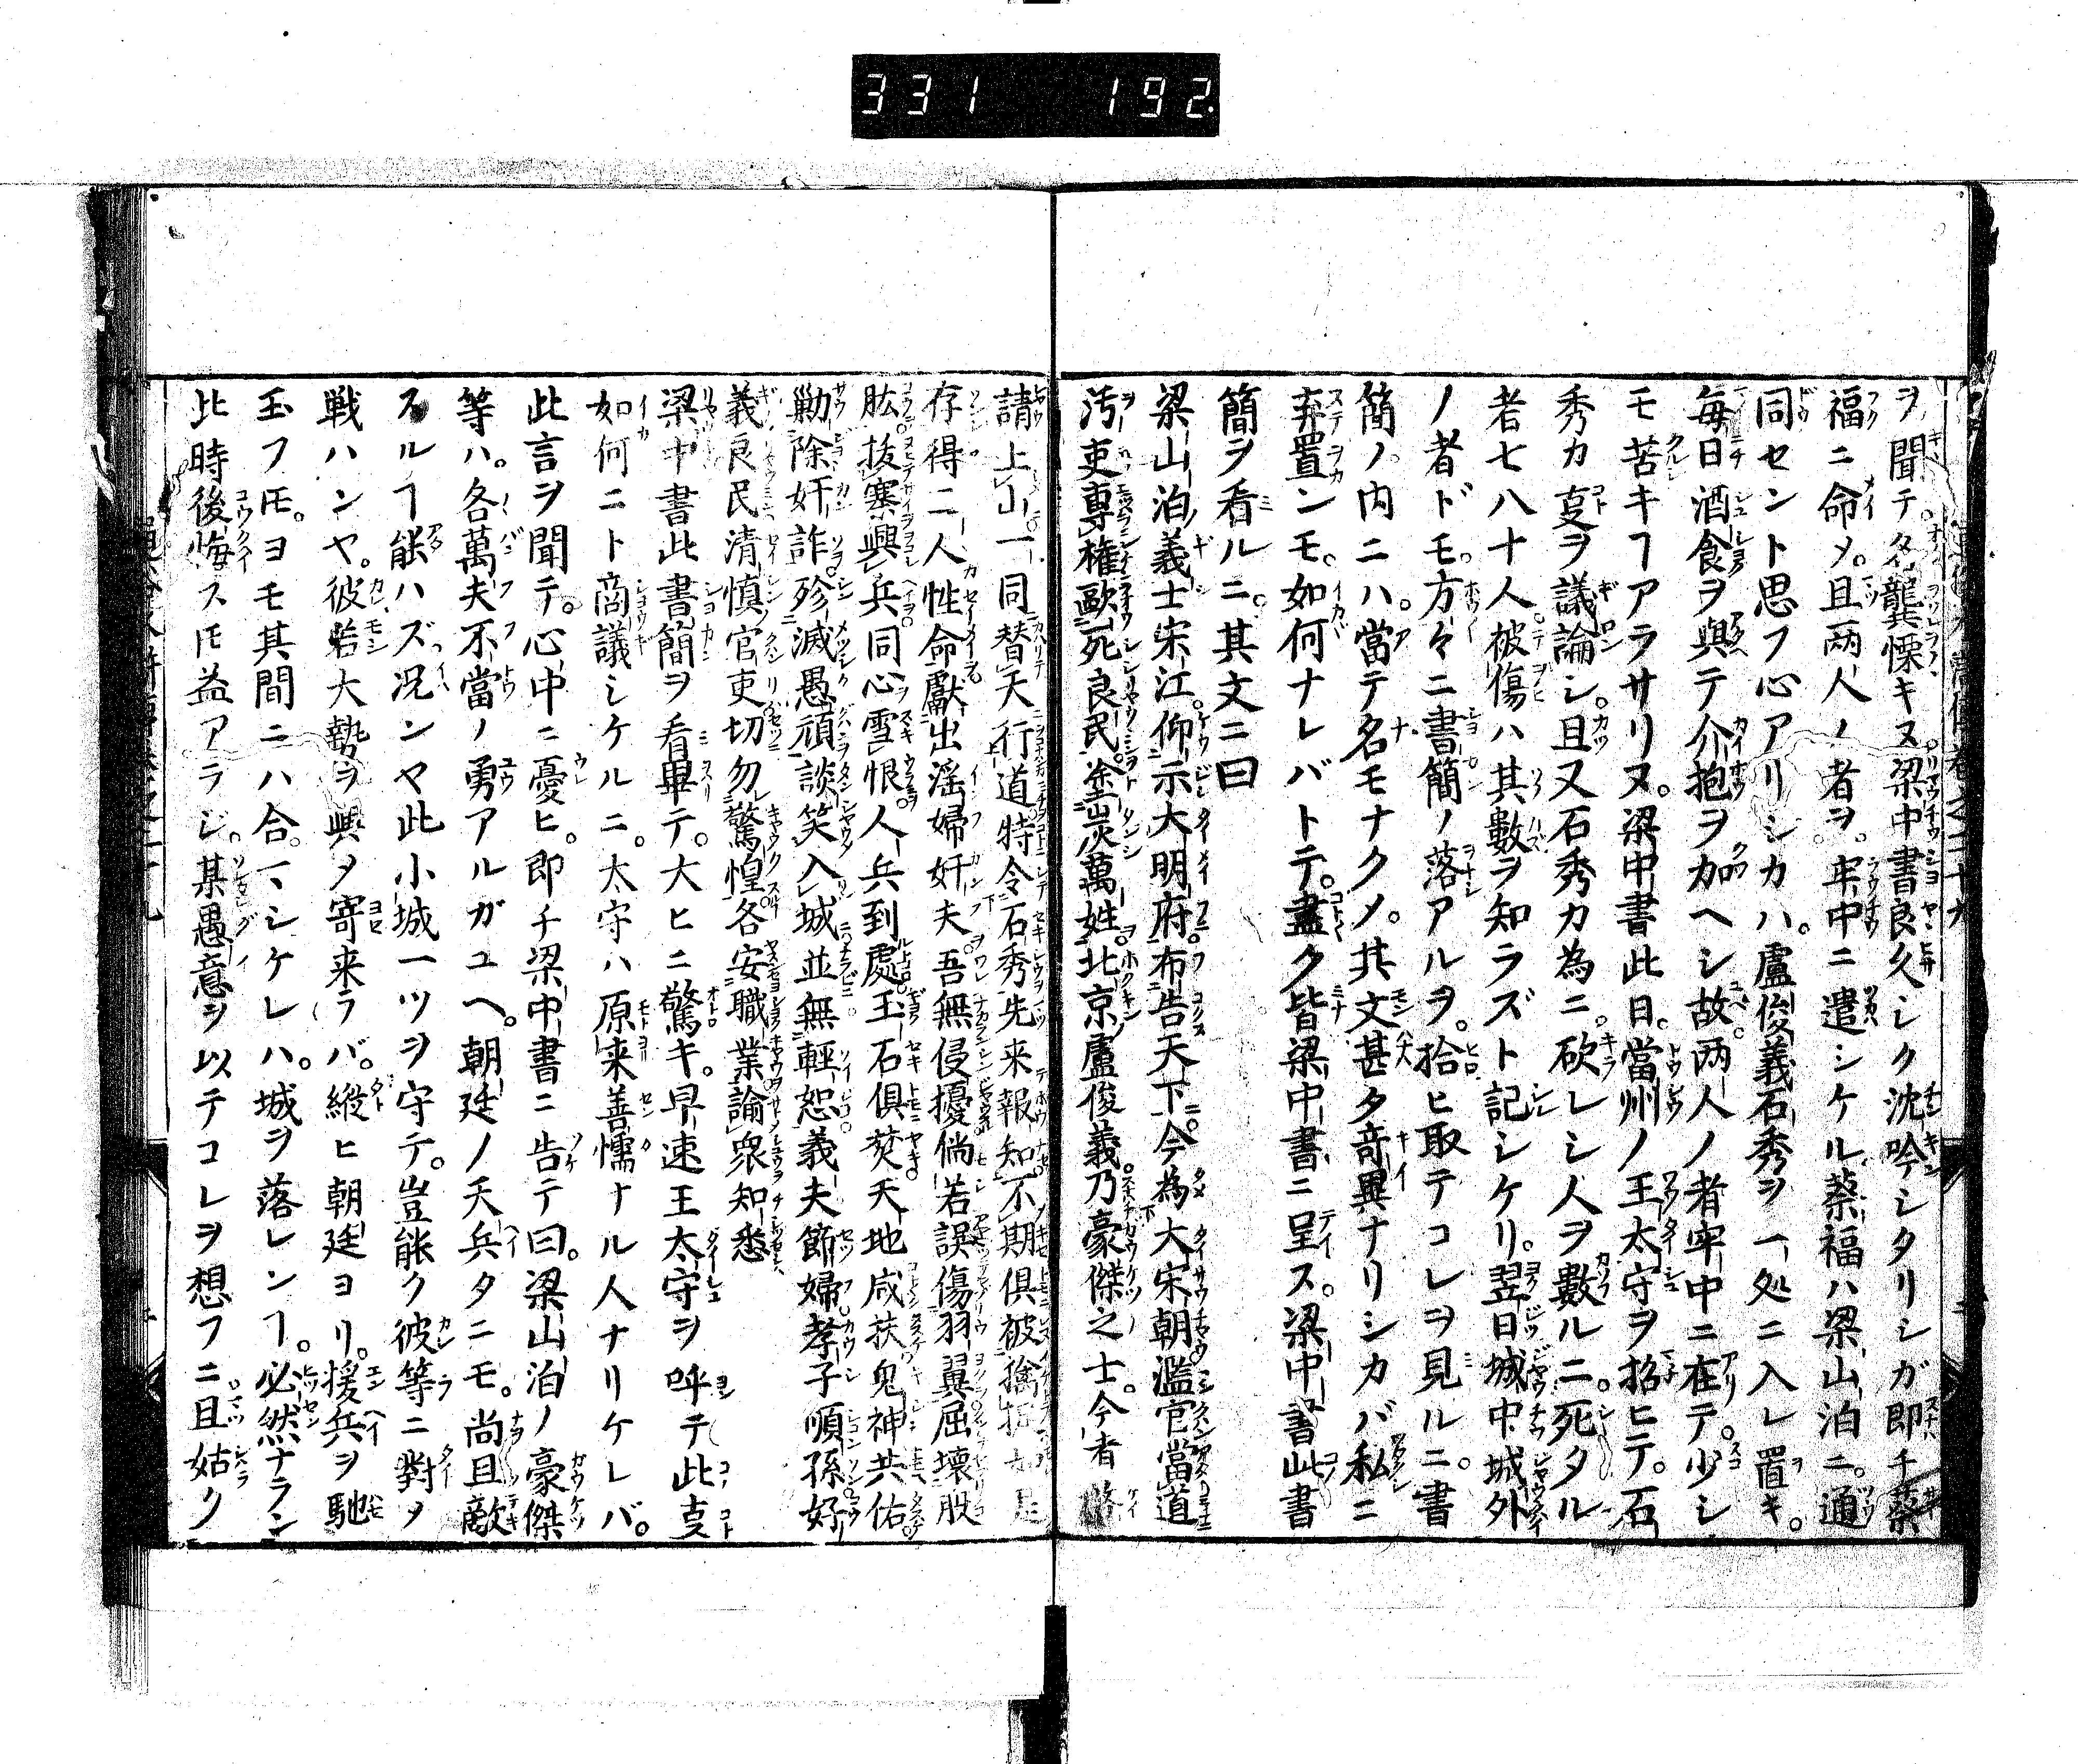 331 192.
ヲ聞テ名龍異慄キス梁中書良久シク沈吟シタリシガ即チ蔡
福ニ命メ。且両人ノ者ヲ。牢中ニ遣シケル蔡福ハ梁山泊ニ。通
同セント思フ心アリシカハ。盧俊義石秀ヲ一処ニ入レ置キ。
毎日酒食ヲ與テ介抱ヲ加ヘシ故。両人ノ者牢中ニ在テ。少シ
モ苦キヿアラサリヌ。梁中書此日。當州ノ王太守ヲ招ヒテ。石
秀カ叓ヲ議論シ。且又石秀カ為ニ。砍レシ人ヲ數ルニ。死タル
者七八十人被傷ハ其數ヲ知ラズト記シケリ。翌日城中城外
ノ者ドモ。方々ニ書簡ノ落アルヲ。拾ヒ取テコレヲ見ルニ。書
簡ノ内ニハ。當テ名モナクメ。其文甚タ竒異ナリシカバ私ニ
弃置ンモ。如何ナレバトテ。盡ク皆梁中書ニ呈ス。梁中書此書
簡ヲ看ルニ。其文ニ曰
梁山泊義士宋江。仰示大明府。布告天下。今為大宋朝濫官當道
汚吏専權。毆死良民。塗炭萬姓。北京盧俊義。乃豪傑之士。今者
請上山。一同替天行道。特令石秀先来報知。不期俱被擒
存得二人性命。獻出淫婦奸夫。吾無侵擾。倘若誤傷羽翼屈壊股
肱。抜寨興兵。同心雪恨。人兵到處。玉石俱焚。天地咸扶。鬼神共佑
勦除奸詐。殄滅愚頑。談笑入城。並無輕恕。義夫節婦。孝子順孫。好
義良民。清慎官吏。切勿驚惶。各安職業。論衆知悉
梁中書此書簡ヲ看畢テ。大ヒニ驚キ。早速王太守ヲ呼テ此叓
如何ニト商議シケルニ。太守ハ原来善懦ナル人ナリケレバ。
此言ヲ聞テ。心中ニ憂ヒ。即チ梁中書ニ告テ曰。梁山泊ノ豪傑
等ハ。各萬夫不當ノ勇アルガユヘ。朝廷ノ天兵タニモ。尚且敵
スルヿ能ハズ况ンヤ此小城一ツヲ守テ。豈能ク彼等ニ對メ
戦ハンヤ。彼若大勢ヲ興メ寄来ラバ。縦ヒ朝廷ヨリ。援兵ヲ馳
玉フ𪜈。ヨモ其間ニハ合マシケレハ。城ヲ落レンヿ。必然ナラン
此時後悔ス𪜈益アラジ。某愚意ヲ以テコレヲ想フニ。且姑ク